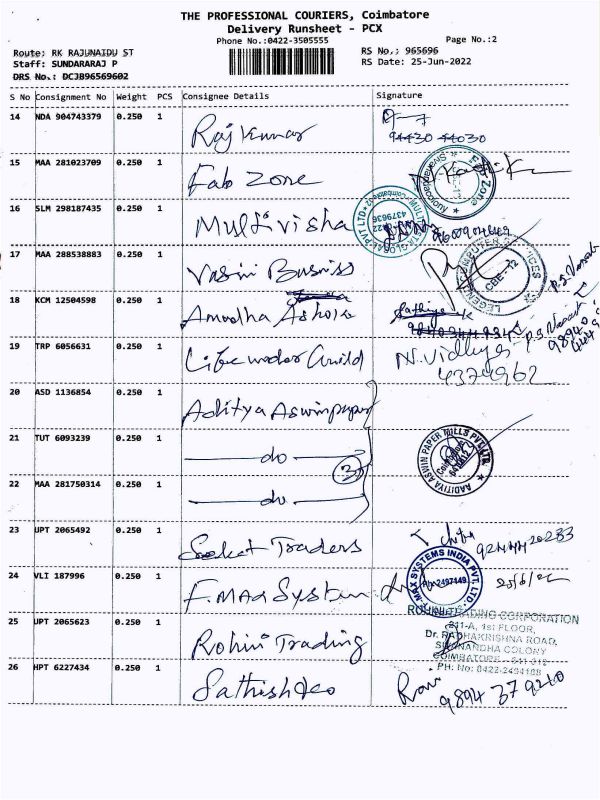 THE PROFESSIONAL COURIERS, Coimbatore
Delivery Runsheet - PCX
Phone No.:0422-3505555
Page No.:2
Route: RK RAJUNAIDU ST
RS No.: 965696
Staff: SUNDARARAJ P
RS Date: 25-Jun-2022
DRS No.: DCJB96569602
S No Consignment No Weight PCS Consignee Details Signature
14 NDA 904743379 0.250 1 Raj Kumar
94430 44030
15 MAA 281023709 0.250 1 Fab Zone
16 SLM 298187435 0.250 1 Multi visha
4379636
17 MAA 288538883 0.250 1 Vasini Business
CBE-12
18 KCM 12504598 0.250 1 Amodha Ashoka
Sathiya K
19 TRP 6056631 0.250 1 N. Vidhya
4374962
20 ASD 1136854 0.250 1 Aditya Aswin paper
21 TUT 6093239 0.250 1 do
AADITIYA ASWIN PAPER MILLS PVT. LTD.
3
22 MAA 281750314 0.250 1 do
23 UPT 2065492 0.250 1 Traders
24 VLI 187996 0.250 1 F.Max System
F-MAX SYSTEMS INDIA PVT. LTD.
Ph: 2497449
25/6/22
25 UPT 2065623 0.250 1 Rohini Trading
ROHINI TRADING CORPORATION
211-A, 1st FLOOR,
Dr. RADHAKRISHNA ROAD,
SIVANANDHA COLONY
COIMBATORE - 641 012
PH: No: 0422-2494188
26 HPT 6227434 0.250 1 Sathish
Ravi
9894 379210